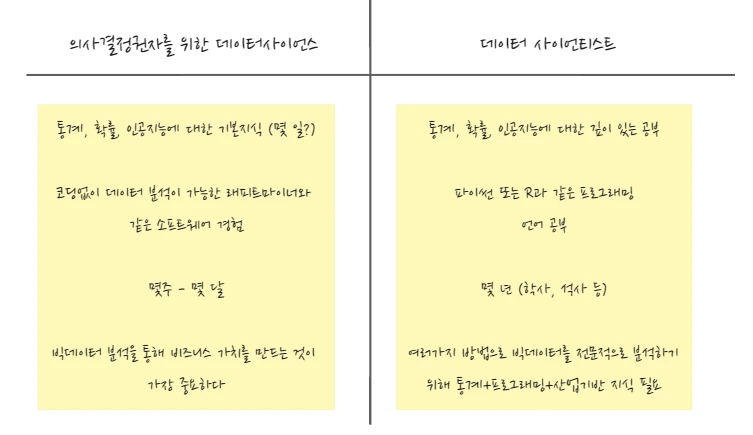 의사결정권자를 위한 데이터사이언스
데이터 사이언티스트
통계, 확률, 인공지능에 대한 기본지식 (몇 일?)
코딩없이 데이터 분석이 가능한 래피드마이너와
같은 소프트웨어 경험
몇주 - 몇 달
빅데이터 분석을 통해 비즈니스 가치를 만드는 것이
가장 중요하다
통계, 확률, 인공지능에 대한 깊이 있는 공부
파이썬 또는 R과 같은 프로그래밍
언어 공부
몇 년 (학사, 석사 등)
여러가지 방법으로 빅데이터를 전문적으로 분석하기
위해 통계+프로그래밍+산업기반 지식 필요